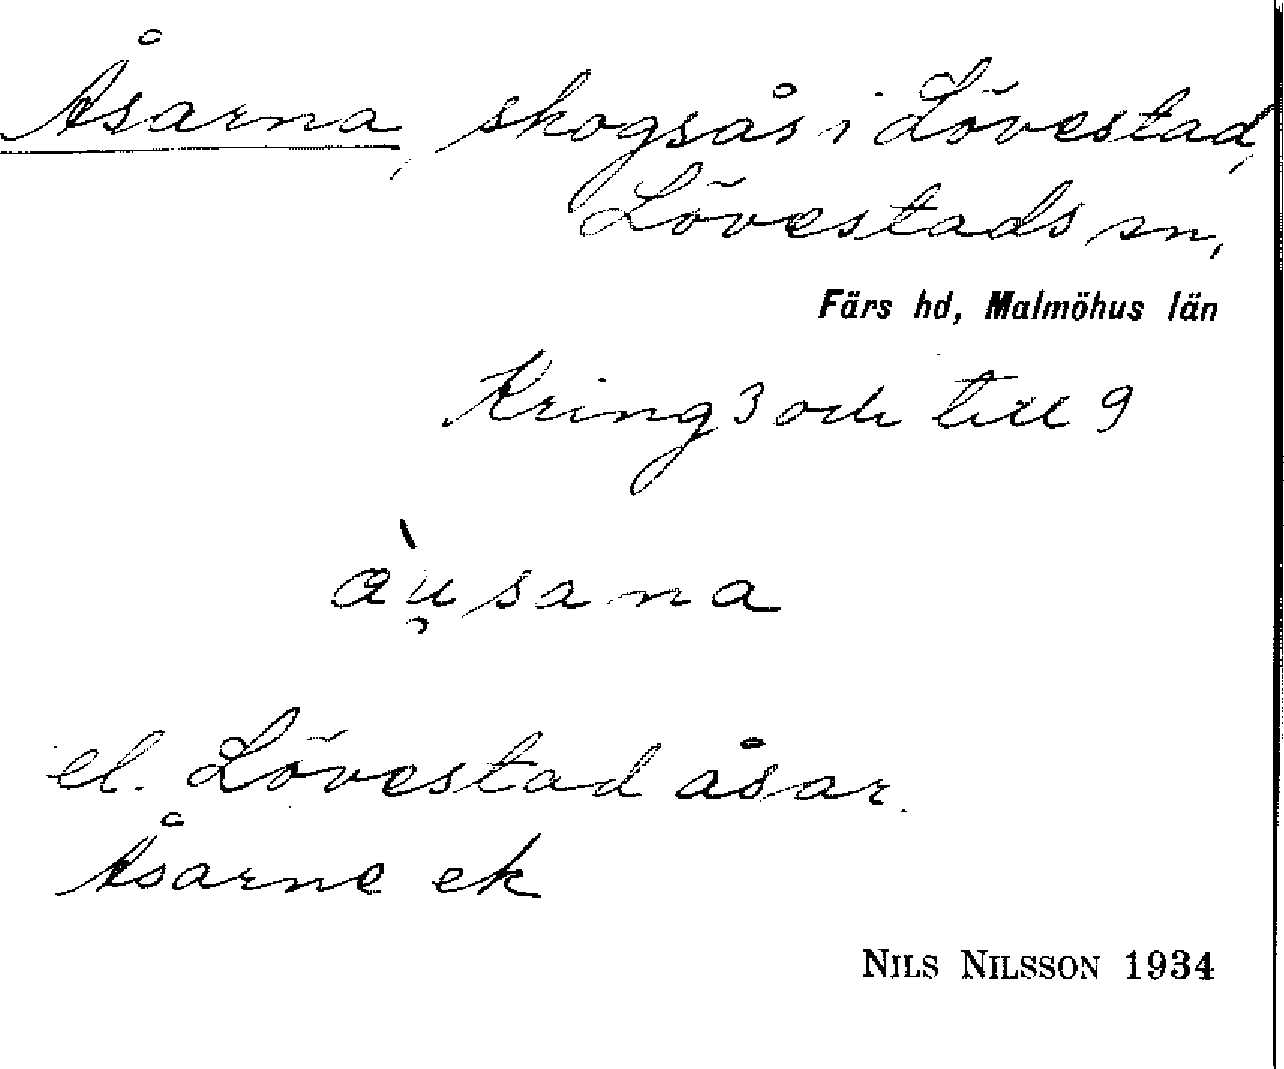 Åsarna, skogsås i Lövestad,
Lövestads sn,
Färs hd, Malmöhus län
Kring 3 och till 9
àu̯sana
el. Lövestad åsar.
Åsarne ek
NILS NILSSON 1934